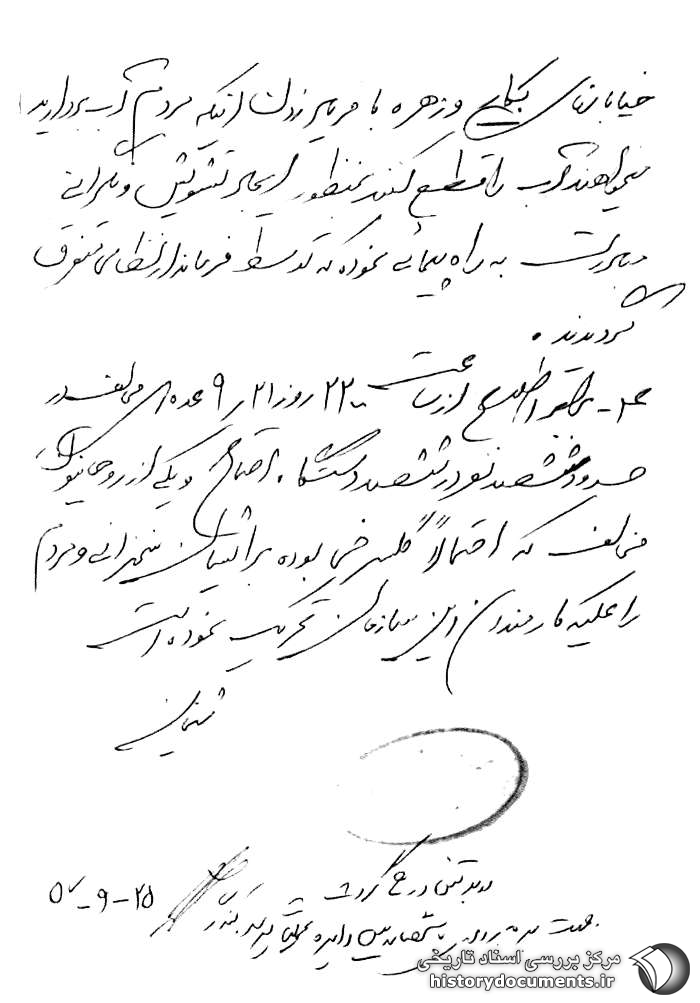 خیابانهای و زهره با فریاد زدن اینکه مردم آب بردارید
میخواهند آب را قطع کنند بمنظور ایجاد تشویش و نگرانی
مبادرت به راه پیمائی نموده که توسط فرمانداری نظامی متفرق
گردیدند.
۴- برابر اطلاع از ساعت ۲۲۰۰ روز ۲۱/۹ عده‌ای مخالف در
حدود ششصد نفر در ششصد دستگاه اجتماع و یکی از روحانیون
مخالف که احتمالاً گلسرخی بوده برای ایشان سخنرانی و مردم
را علیه کارمندان این سازمان تحریک نموده است
در بولتن درج گردد
۵۷-۹-۲۵
جهت بهره‌برداری به
مرکز بررسی اسناد تاریخی
historydocuments.ir